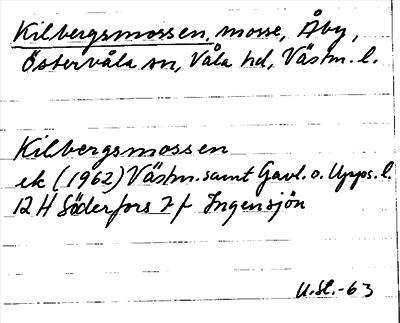 Kilbergsmossen, mosse, Åby,
Östervåla sn, Våla hd, Västm. l.
Kilbergsmossen
ek (1962) Västm. samt Gävl. o. Upps. l.
12 H Söderfors 7 f Ingensjön
U.St.-63